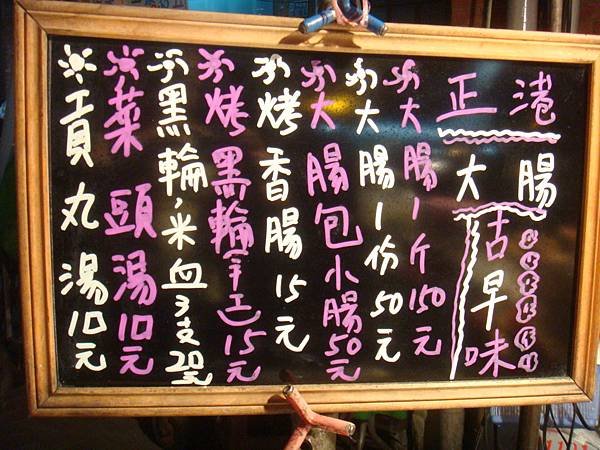 正港
大腸
古早味
大腸1斤150元
大腸1份50元
大腸包小腸50元
烤香腸15元
烤黑輪手工15元
黑輪,米血3支20元
菜頭湯10元
貢丸湯10元